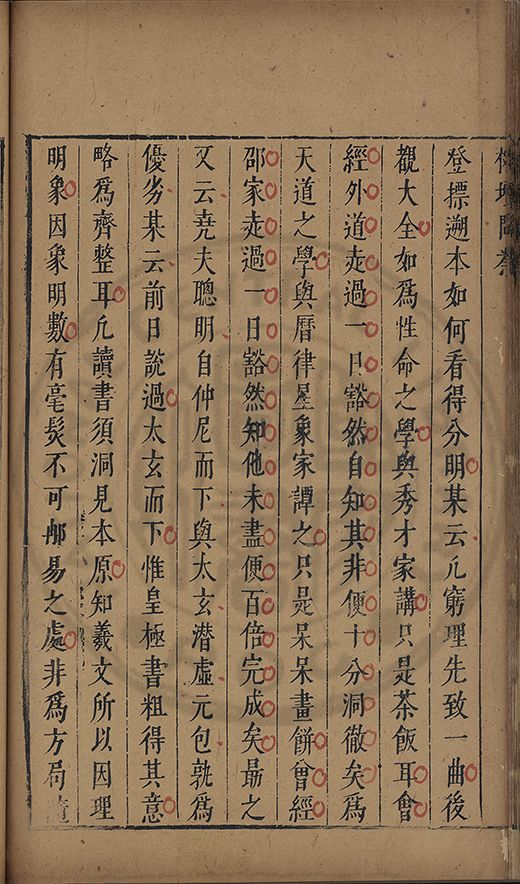 榕壇問業
登摽遡本如何看得分明某云凡窮理先致一曲後
觀大全如爲性命之學與秀才家講只是茶飯耳會
經外道走過一日豁然自知其非便十分洞徹矣爲
天道之學與曆律星象家譚之只是呆呆畫餅曾經
邵家走過一日豁然知他未盡便百倍完成矣最之
又云堯夫聰明自仲尼而下與太玄潜虛元包孰爲
優劣某云前日說過太玄而下惟皇極書粗得其意
略爲齊整耳凡讀書須洞見本原知羲文所以因理
明象因象明數有毫髮不可那易之處非爲方局